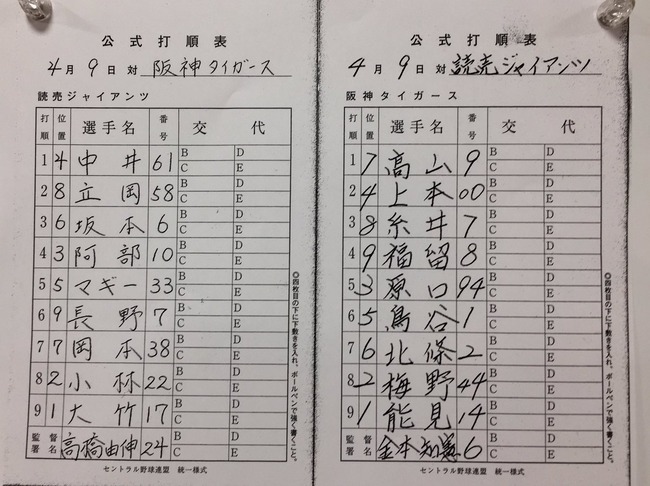 公式打順表
4月9日対 阪神タイガース
読売ジャイアンツ
打順 位置 選手名 番号 交代
1 4 中井 61 B D C E
2 8 立岡 58 B D C E
3 6 坂本 6 B D C E
4 3 阿部 10 B D C E
5 5 マギー 33 B D C E
6 9 長野 7 B D C E
7 7 岡本 38 B D C E
8 2 小林 22 B D C E
9 1 大竹 17 B D C E
監督署名 高橋由伸 24 B D C E
セントラル野球連盟 統一様式
◎四枚目の下に下敷きを入れ、ボールペンで強く書くこと。
公式打順表
4月9日対 読売ジャイアンツ
阪神タイガース
打順 位置 選手名 番号 交代
1 7 高山 9 B D C E
2 4 上本 00 B D C E
3 8 糸井 7 B D C E
4 9 福留 8 B D C E
5 3 原口 94 B D C E
6 5 鳥谷 1 B D C E
7 6 北條 2 B D C E
8 2 梅野 44 B D C E
9 1 能見 14 B D C E
監督署名 金本知憲 6 B D C E
セントラル野球連盟 統一様式
◎四枚目の下に下敷きを入れ、ボールペンで強く書くこと。